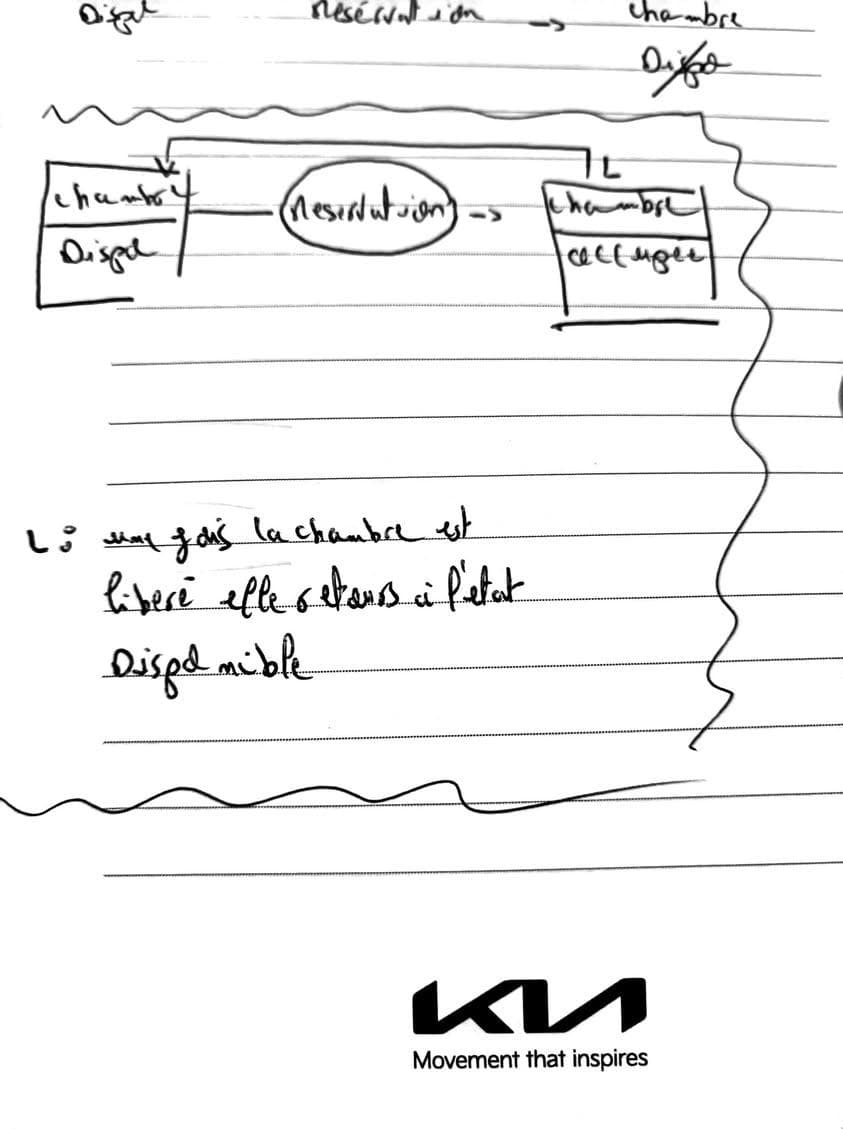 Dispo Réservation -> chambre
Dispo
L
chambre Réservation -> chambre
Dispo occupée
L : une fois la chambre est
liberé elle retours à l'etat
Disponible
KIA
Movement that inspires